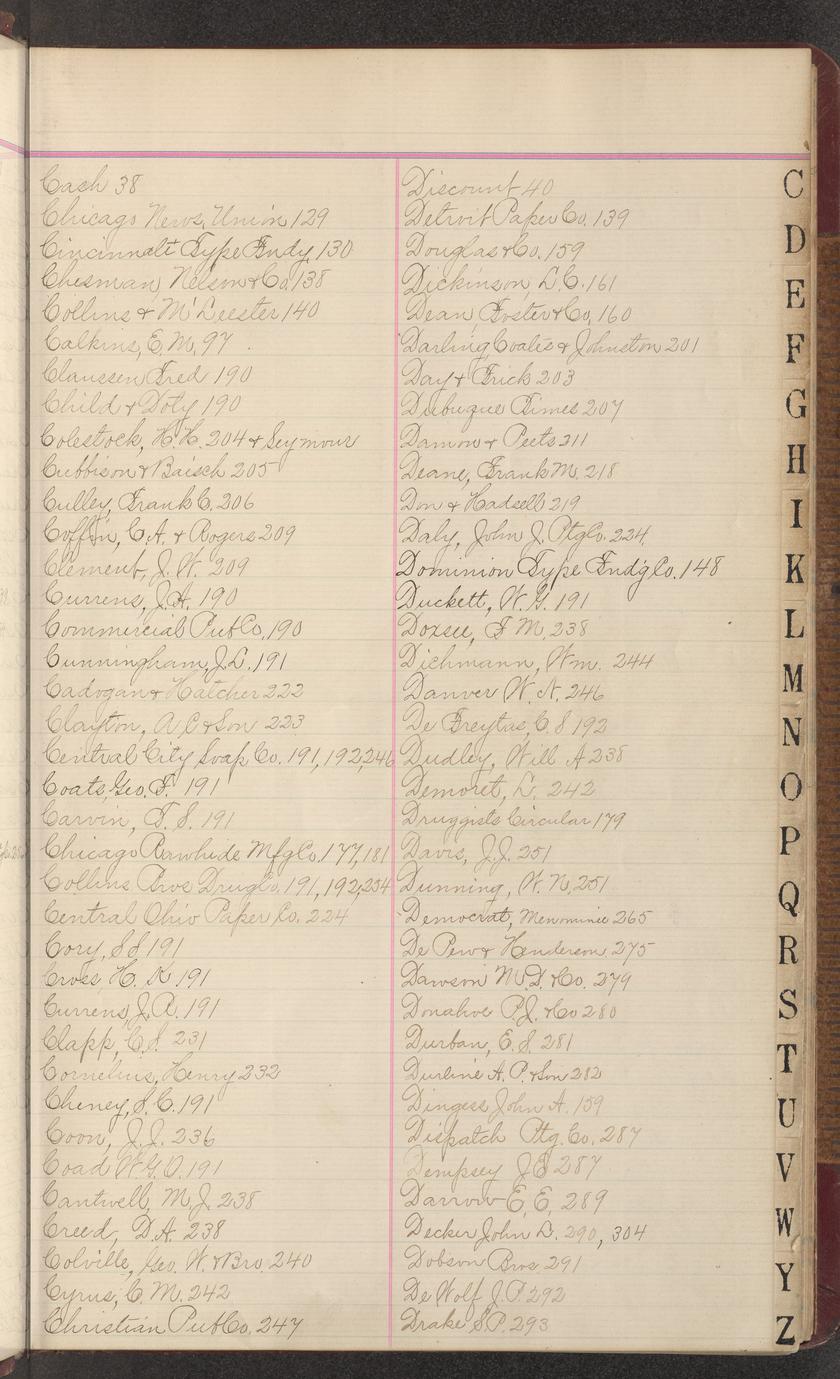 Cash 38
Chicago News, Union 129
Cincinnati Type Fndy, 130
Chesman, Nelson & Co, 138
Collins & M'Leester 140
Calkins, E. M, 97
Claussen Fred 190
Child & Doty 190
Colestock, H. H. 204 & Seymour
Cubbison & Baisch 205
Culley, Frank C. 206
Coffin, C. A. & Rogers 209
Clement, J. W. 209
Currens, J. A. 190
Commercial Pub Co, 190
Cunningham, J. L. 191
Cadogan & Hatcher 222
Clayton, A C & Son 223
Central City Soap Co. 191, 192, 246
Coats, Geo. F. 191
Carvin, T. S. 191
Chicago Rawhide Mfg Co. 177, 181
Collins Bros Drug Co. 191, 192, 254
Central Ohio Paper Co. 224
Cory, S S 191
Croes H. K 191
Currens, J. R. 191
Clapp, C. S. 231
Cornelius, Henry 232
Cheney, S. C. 191
Coon, J. J. 236
Coad W. G. O. 191
Cantwell, M. J. 238
Creed, D. A. 238
Colville, Geo. W. & Bro. 240
Cyrus, C. M. 242
Christian Pub Co. 247
Discount 40
Detroit Paper Co. 139
Douglas & Co. 159
Dickinson, L. C. 161
Dean Foster & Co, 160
Darling Coates & Johnston 201
Day & Frick 203
Dubuque Times 207
Damon & Peets 211
Deane, Frank M. 218
Don & Hadsell 219
Daly, John J. Ptg Co. 224
Dominion Type Fnd'g Co. 148
Duckett, W. G. 191
Doxsee, F M, 238
Dichmann, Wm. 244
Danver W. N. 246
De Freytas, C. S 192
Dudley, Will A 238
Demoret, L. 242
Druggists Circular 179
Davis, J. J. 251
Dunning, W. N, 251
Democrat, Menominee 265
De Pew & Henderson, 275
Dawson M. D. & Co. 279
Donahoe P. J. & Co 280
Durban, E. S. 281
Durline A. P. & Son 282
Dingess John A. 159
Dispatch Ptg. Co. 287
Dempsey J E 287
Darrow E, E, 289
Decker John L. 290, 304
Dobson Bros 291
De Wolf J. P. 292
Drake S. P. 293
C
D
E
F
G
H
I
K
L
M
N
O
P
Q
R
S
T
U
V
W
Y
Z